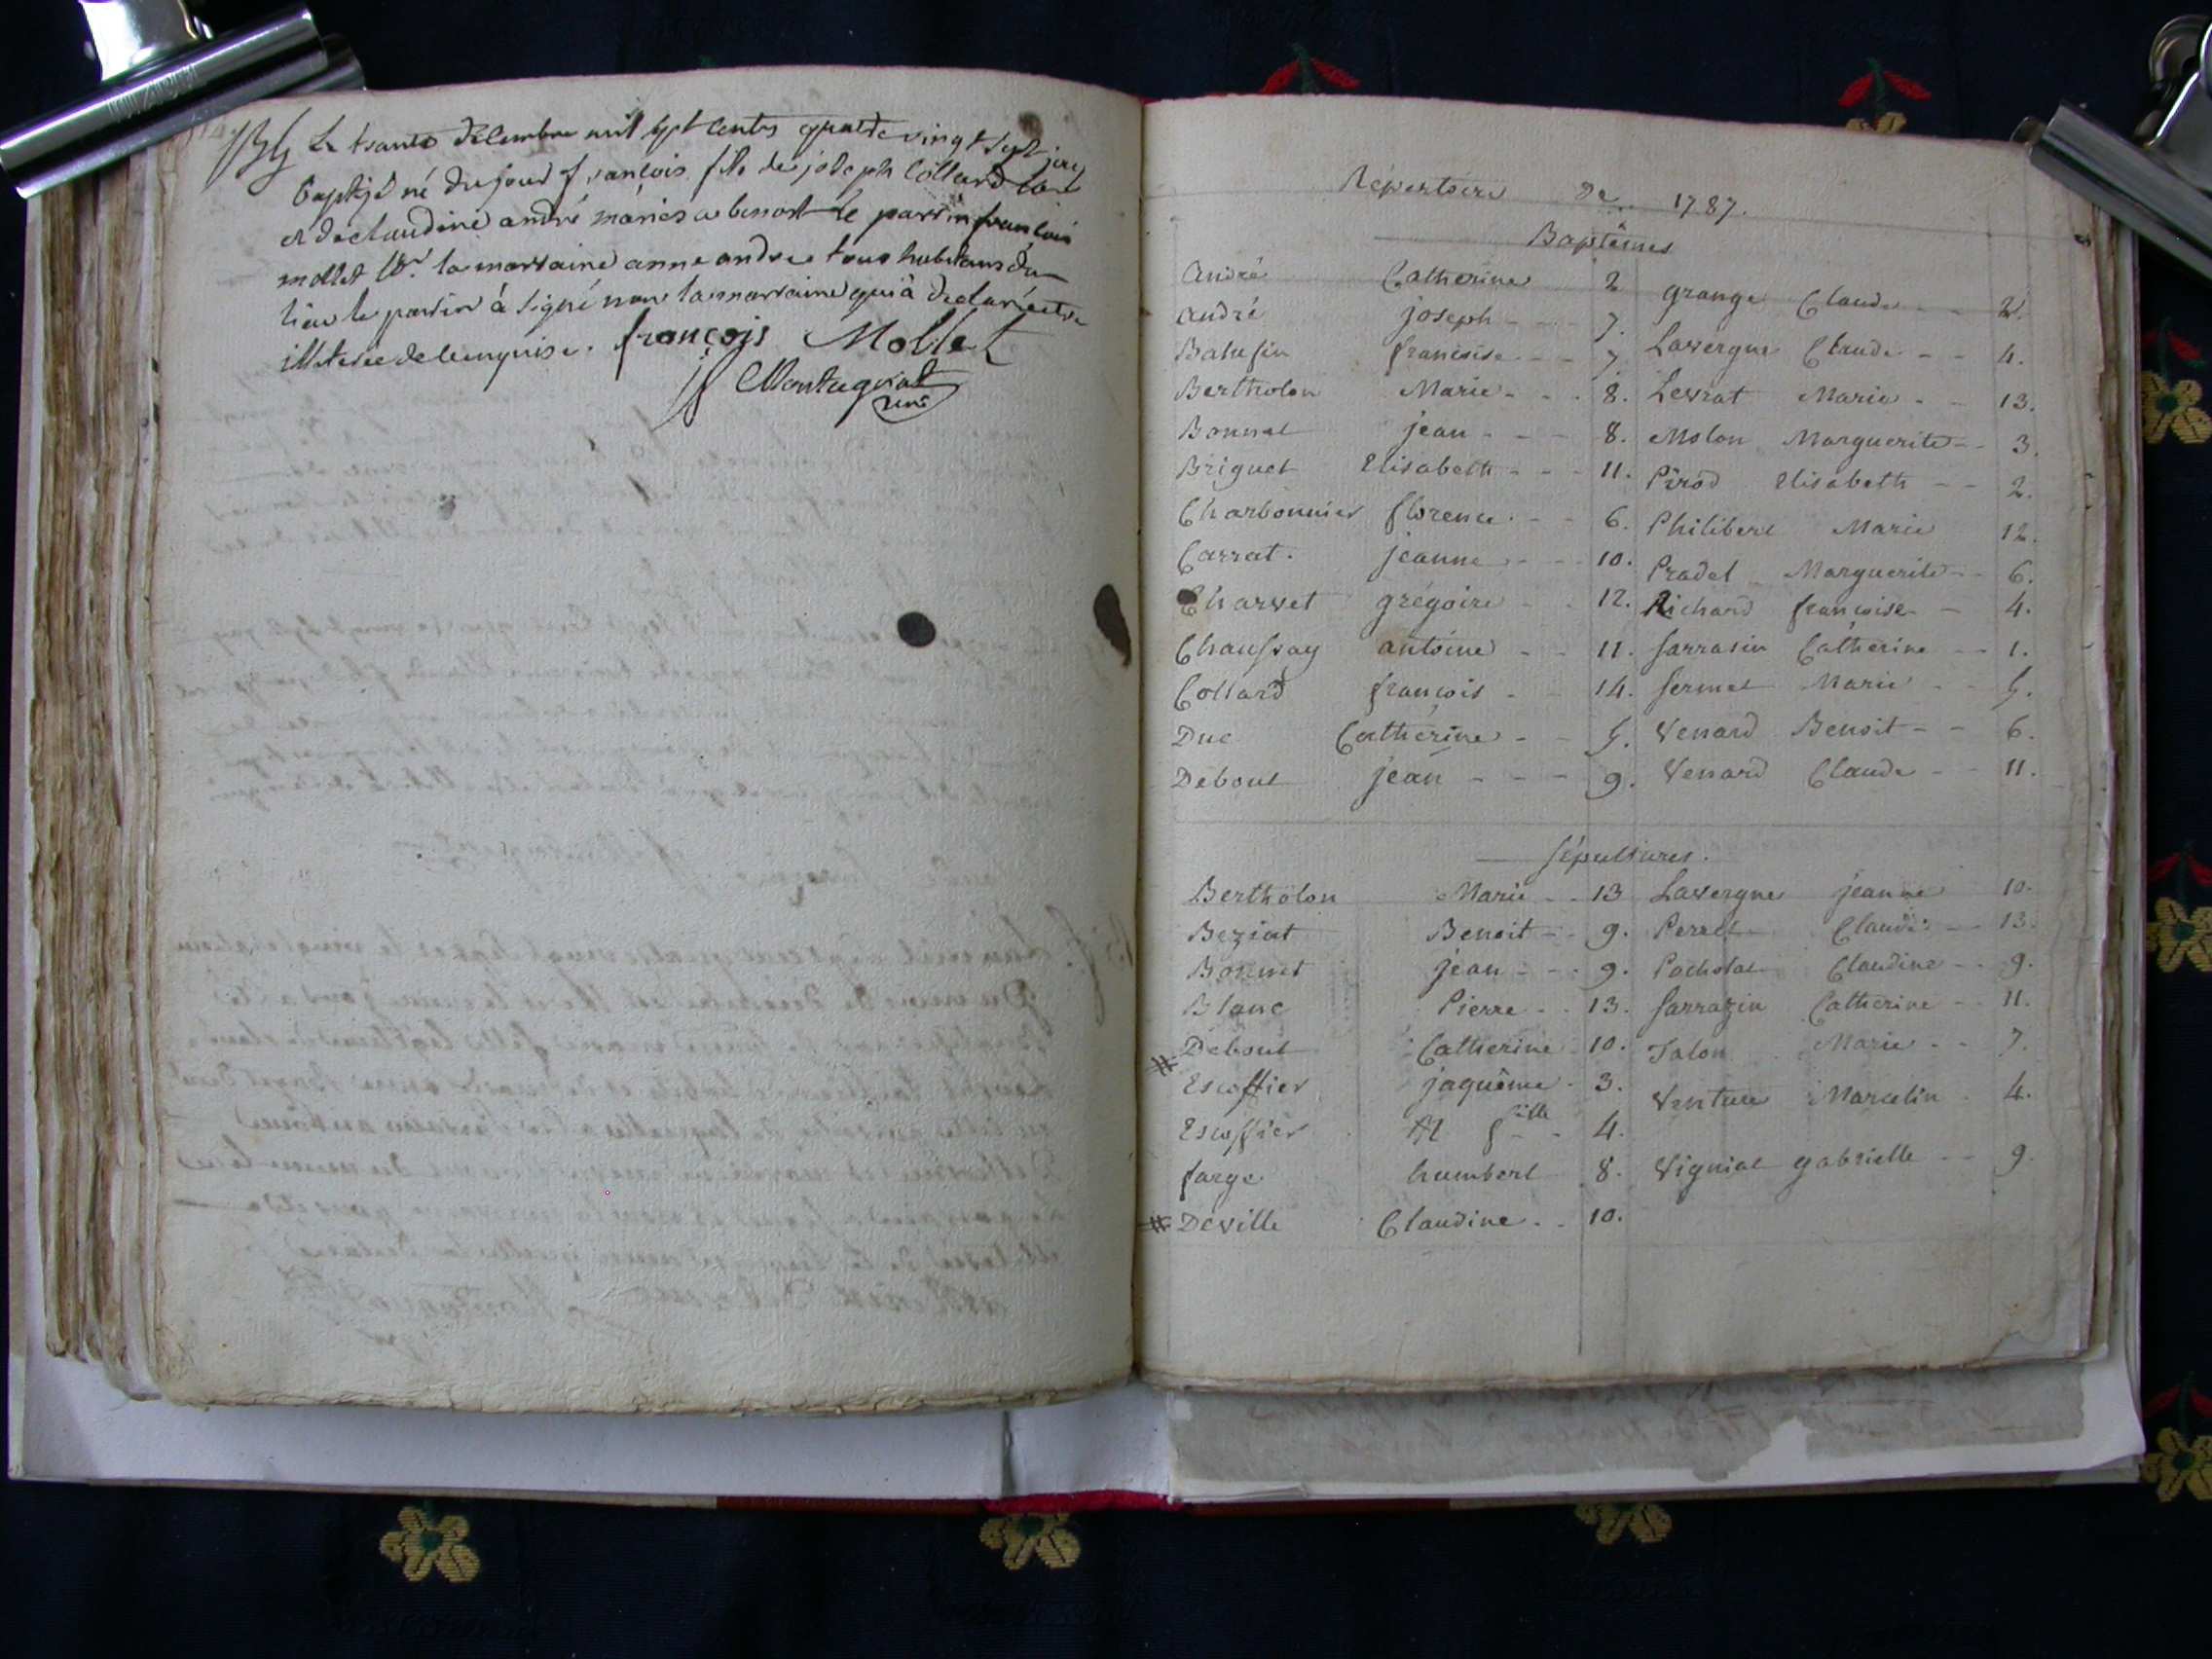 Le trante decembre mil sept cents quatre vingt sept j'ai
baptisé né du jour françois fils de joseph Collard
et de claudine andré mariés a benost le parrin francois
mollet la marraine anne andree tous habitans du
lieu le parrin à signé non la marraine qui à declaré etre
illiteree de ce enquise. françois Mollet
Montagnat
curé
Répertoire de 1787.
Baptêmes
André Catherine 2 grange Claude 2.
André joseph 7. Lavergne Claude 4.
francoise 7
Bertholon Marie 8. Levrat Marie 13.
Bonnet jean 8. Molon Marguerite 3.
Briguet Elisabeth 11. Pirod Elisabeth 2.
Charbonnier florence 6. Philibert Marie 12.
Carrat. jeanne 10. Pradel Marguerite 6.
Charvet grégoire 12. Richard françoise 4.
Chaussay antoine 11. Sarrasin Catherine 1.
Collard françois 14. Sermet Marie 5.
Duc Catherine 5. Venard Benoit 6.
Debout jean 9. Venard Claude 11.
Sépultures.
Bertholon Marie 13 Lavergne jeanne 10.
Beziat Benoit 9. Peret 13.
Bonnet jean 9. Pocholat Claudine 9.
Blanc Pierre 13. Sarrazin Catherine 11.
# Debout Catherine 10. Talon Marie 7.
Escoffier jaquême 3. Venture Marcelin 4.
Escoffier fille 4.
farge humbert 8. Vignial gabrielle 9.
# Deville Claudine 10.